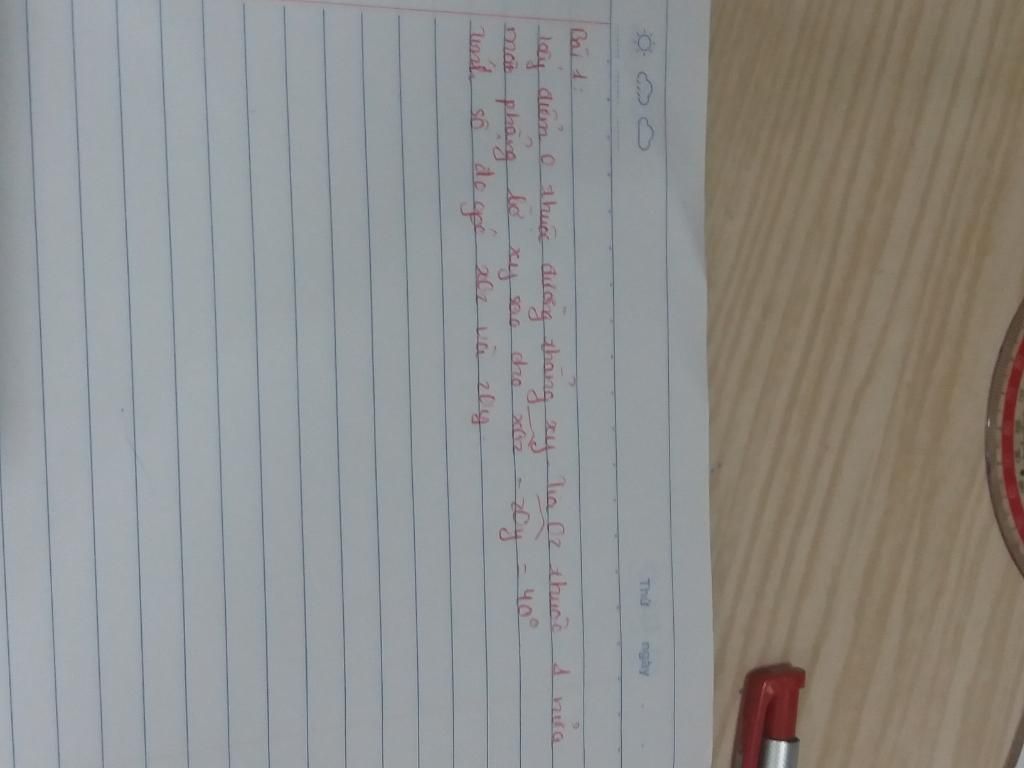 Thứ ngày
Bài 1:
Lấy điểm O thuộc đường thẳng xy. Tia Oz thuộc 1 nửa
mặt phẳng bờ xy sao cho xOz - zOy = 40°
Tính số đo góc xOz và zOy.